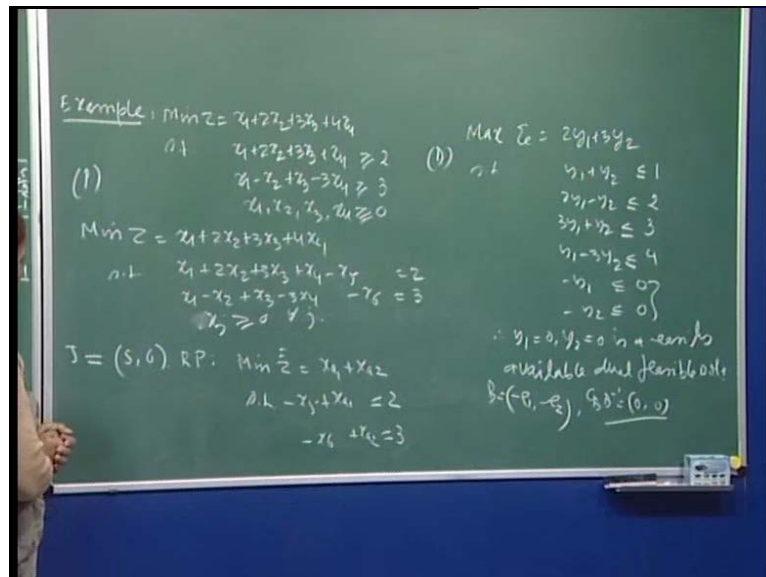 Example: Min Z = x₁+2x₂+3x₃+4x₄
s.t x₁+2x₂+3x₃+x₄ ≥ 2
(P)
x₁-x₂+x₃-3x₄ ≥ 3
x₁, x₂, x₃, x₄ ≥ 0
Min Z = x₁+2x₂+3x₃+4x₄
s.t x₁+2x₂+3x₃+x₄-x₅ = 2
x₁-x₂+x₃-3x₄ -x₆ = 3
xⱼ ≥ 0 ∀ j.
J = (5,6). RP: Min = xₐ₁+xₐ₂
s.t -x₅+xₐ₁ = 2
-x₆ +xₐ₂ = 3
Max = 2y₁+3y₂
(D) s.t y₁+y₂ ≤ 1
2y₁-y₂ ≤ 2
3y₁+y₂ ≤ 3
y₁-3y₂ ≤ 4
-y₁ ≤ 0
-y₂ ≤ 0}
∴ y₁=0, y₂=0 is a
available dual feasible
B=(-e₁,-e₂), C_B B⁻¹=(0, 0)